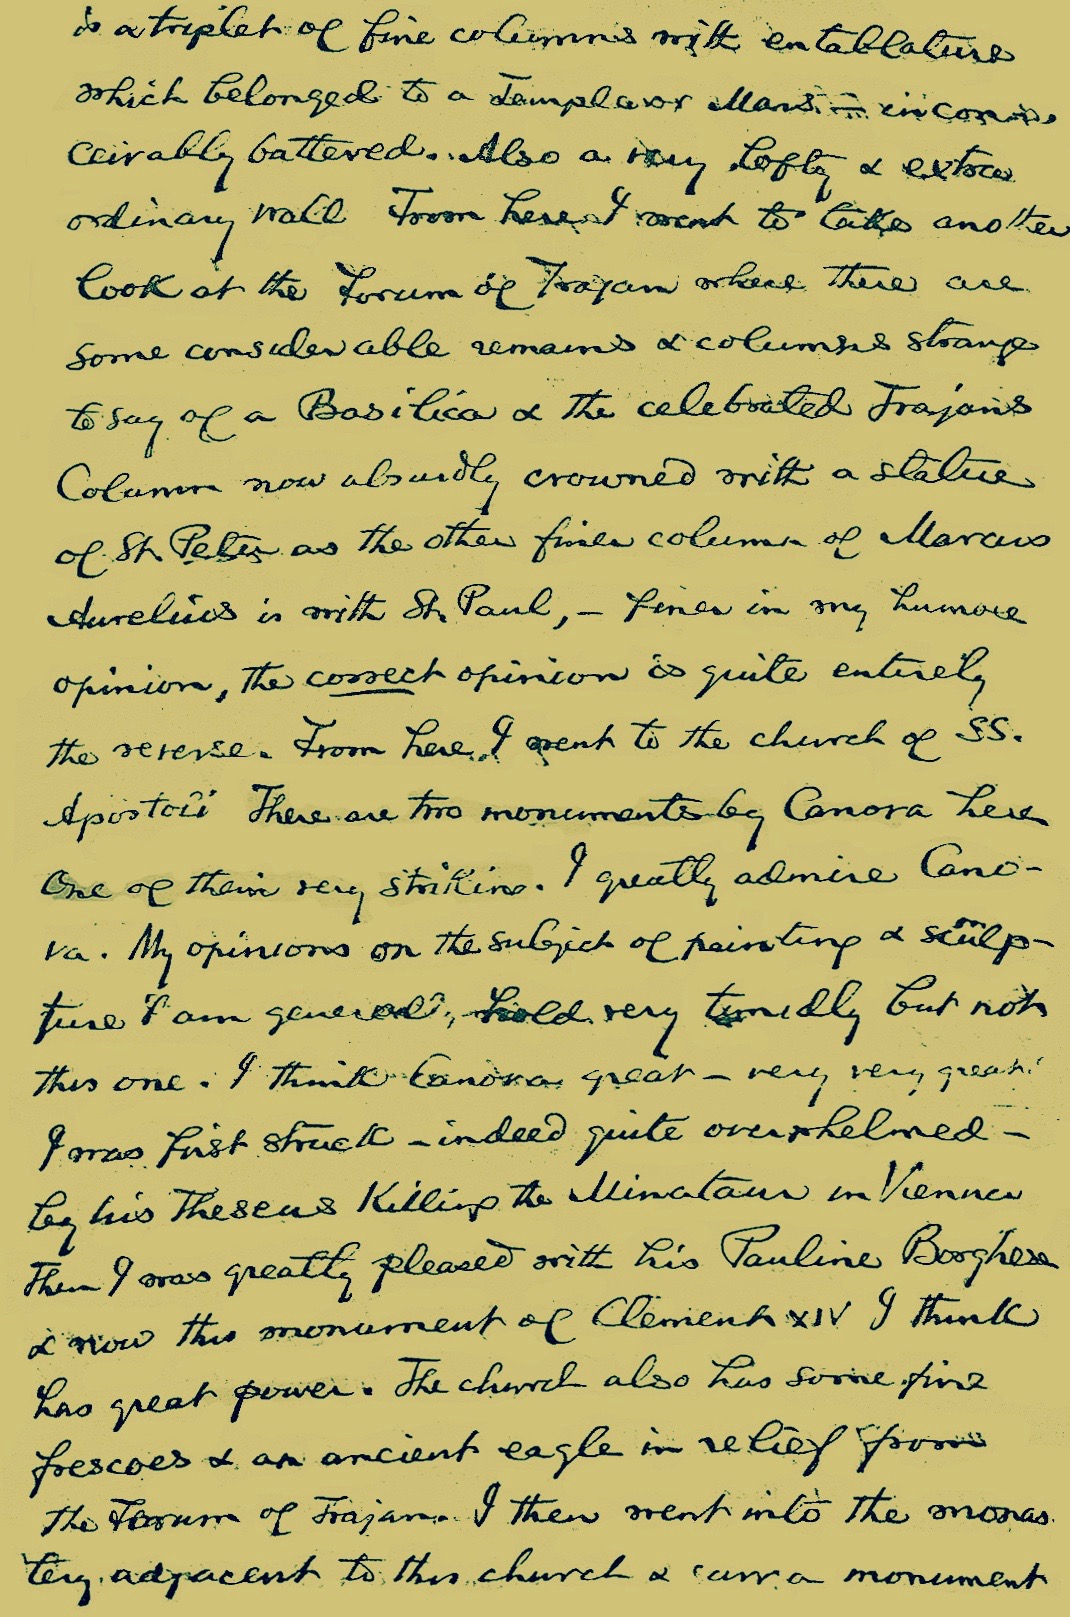 is a triplet of fine columns with entablature
which belonged to a Temple or Mars – incon-
ceivably battered. Also a very lofty & extra
ordinary wall From here I went to take another
look at the Forum of Trajan where there are
some considerable remains & columns strange
to say of a Basilica & the celebrated Trajan's
Column now absurdly crowned with a statue
of St. Peter as the other finer column of Marcus
Aurelius is with St. Paul, – finer in my humble
opinion, the correct opinion is quite entirely
the reverse. From here I went to the church of SS.
Apostoli There are two monuments by Canova here
One of them very striking. I greatly admire Cano-
va. My opinions on the subject of painting & sculp-
ture I am general, hold very timidly but not
this one. I think Canova great – very very great!
I was first struck – indeed quite overwhelmed –
by his Theseus Killing the Minataur in Vienna
Then I was greatly pleased with his Pauline Borghese
& now this monument of Clement XIV I think
has great power. The church also has some fine
frescoes & an ancient eagle in relief from
the Forum of Trajan. I then went into the monas
tery adjacent to this church & saw a monument